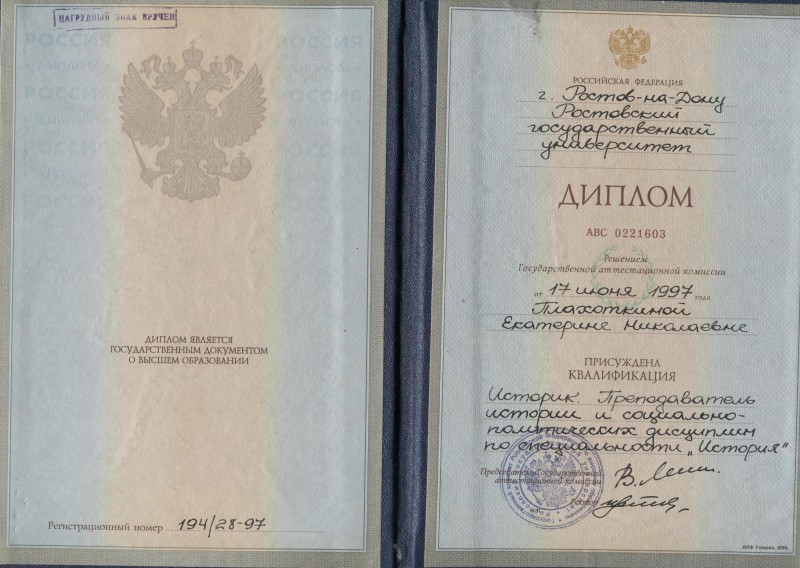 НАГРУДНЫЙ ЗНАК ВРУЧЕН
ДИПЛОМ ЯВЛЯЕТСЯ
ГОСУДАРСТВЕННЫМ ДОКУМЕНТОМ
О ВЫСШЕМ ОБРАЗОВАНИИ
Регистрационный номер 194/28-97
РОССИЙСКАЯ ФЕДЕРАЦИЯ
г. Ростов-на-Дону
Ростовский
государственный
университет
ДИПЛОМ
АВС 0221603
Решением
Государственной аттестационной комиссии
от 17 июня 1997 года
Плахоткиной
Екатерине Николаевне
ПРИСУЖДЕНА
КВАЛИФИКАЦИЯ
Историк. Преподаватель
истории и социально-
политических дисциплин
по специальности „История"
Председатель Государственной
аттестационной комиссии
Ректор